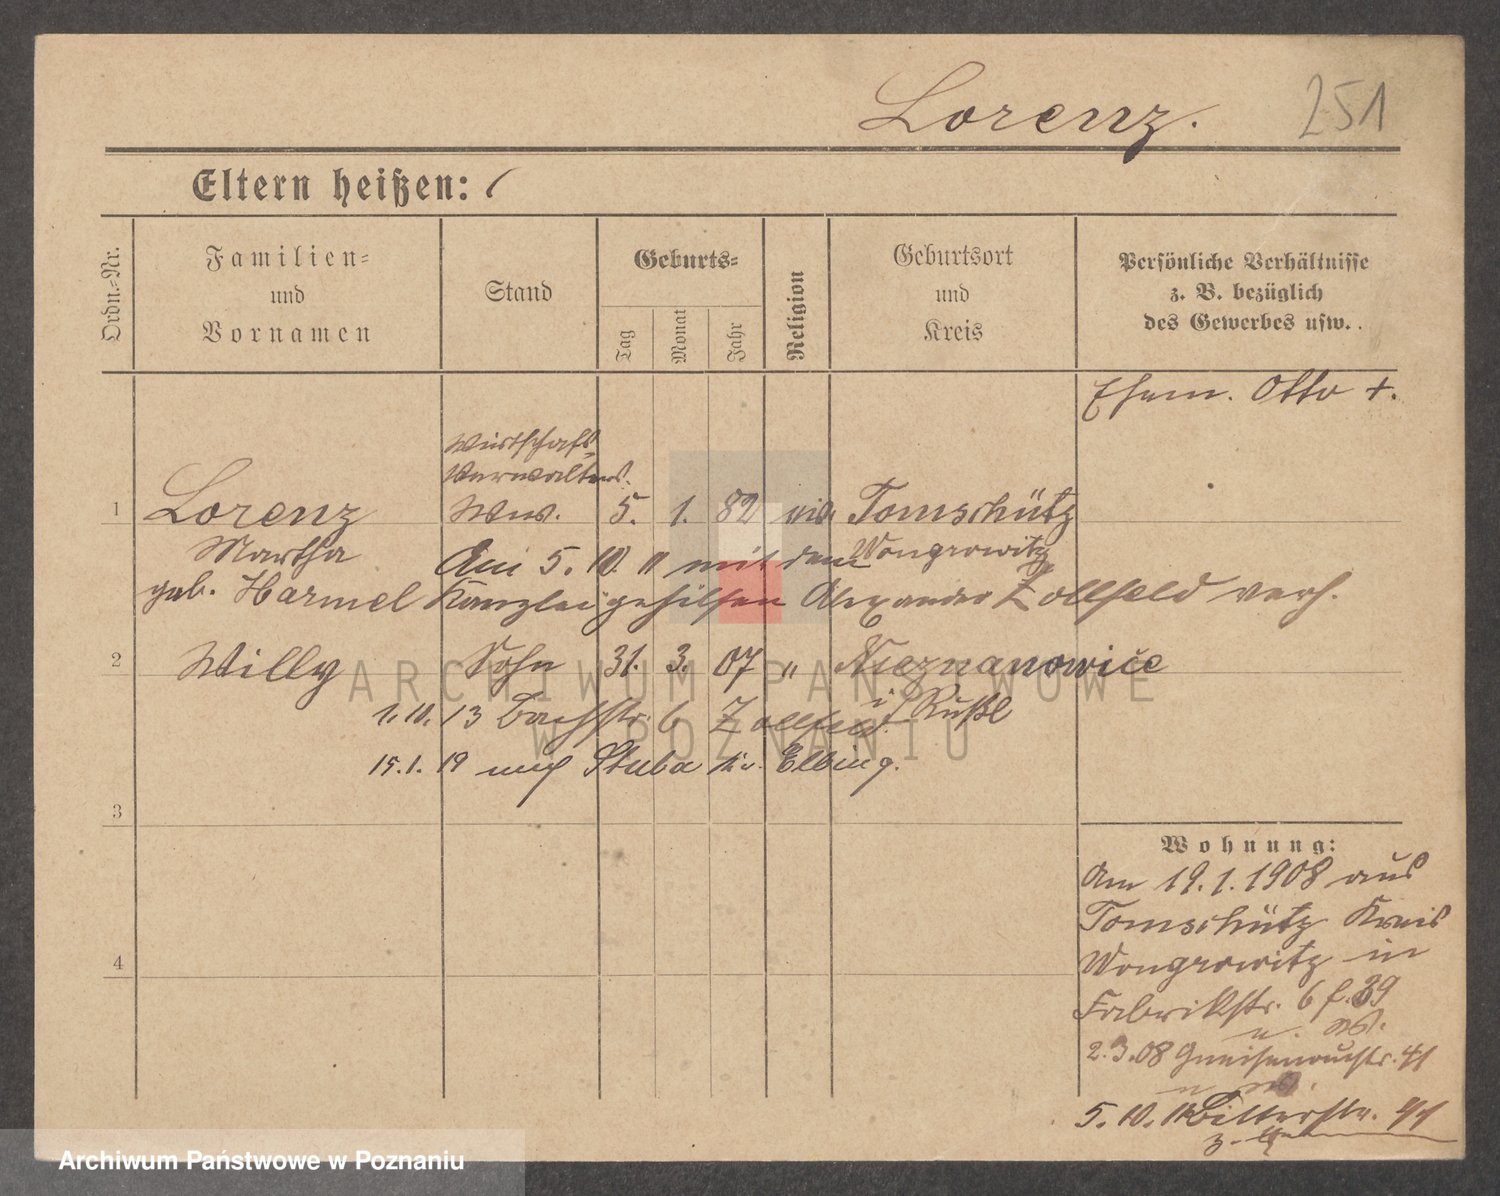 Lorenz. 251
Eltern heißen:
Ordn.-Nr.
Familien-
und
Vornamen
Stand
Geburts-
Tag
Monat
Jahr
Religion
Geburtsort
und
Kreis
Persönliche Verhältnisse
z. B. bezüglich
des Gewerbes usw.
Ehem. Otto +.
Wirtschafts-
Verwalters
1 Lorenz Ww. 5. 1. 82 Tomschütz
Martha Am 5. 10. 11 mit dem Wongrowitz
geb. Harmel Kanzleigehilfen Alexander Zollfeld verh.
2 Willy Sohn 31. 3. 07 " Nieznanowice
i/ Rußl
1. 10. 13 Bachstr. 6 Zollfeld.
15. 1. 19 nach Stuba Kr. Elbing.
3
4
Wohnung:
Am 19. 1. 1908 aus
Tomschütz Kreis
Wongrowitz in
Fabrikstr. 6 f. 39
2. 3. 08 Gneisenaustr. 41
5. 10. 11 Bitterstr.
ARCHIWUM PAŃSTWOWE
W POZNANIU
Archiwum Państwowe w Poznaniu